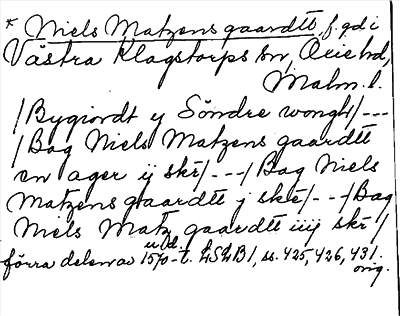 * Niels Matzens gaardtt, f. gd i
Västra Klagstorps sn, Oxie hd,
Malm. l.
/Bygiordt y Söndre wongh/---
/Bag Niels Matzens gaardtt
en ager ij skr/---/Bag Niels
Matzens gaardtt j skr/---/Bag
Niels Matz gaardtt iiij skr/
förra delen av 1570-t. LSLB1, ss. 425, 426, 431.
orig.